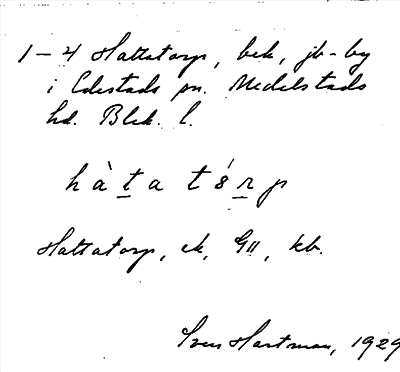 1–4 Hattatorp, bek, jb-by
i Edestads sn. Medelstads
hd. Blek. l.
hàta tórp
Hattatorp, ek, GII, kb.
Sven Hartman, 1929